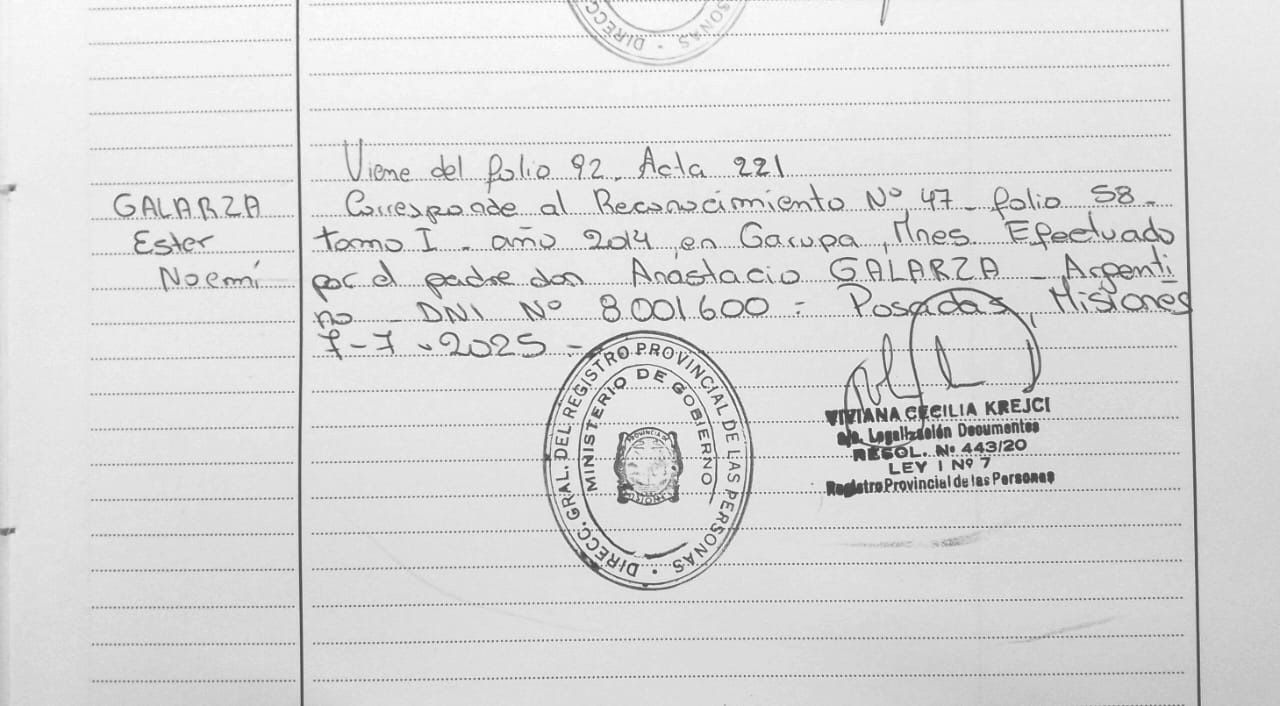 DIRECC. PERSONAS
Viene del folio 92. Acta 221
GALARZA
Ester
Noemí
Corresponde al Reconocimiento Nº 47 - folio 58 -
tomo I - año 2014, en Garupa, Mnes. Efectuado
por el padre don Anastacio GALARZA - Argenti
no - DNI Nº 8.001.600 = Posadas, Misiones
7-7-2025 -
DIRECC. GRAL. DEL REGISTRO PROVINCIAL DE LAS PERSONAS
MINISTERIO DE GOBIERNO
VIVIANA CECILIA KREJCI
Legalización Documentos
RESOL. Nº 443/20
LEY I Nº 7
Registro Provincial de las Personas